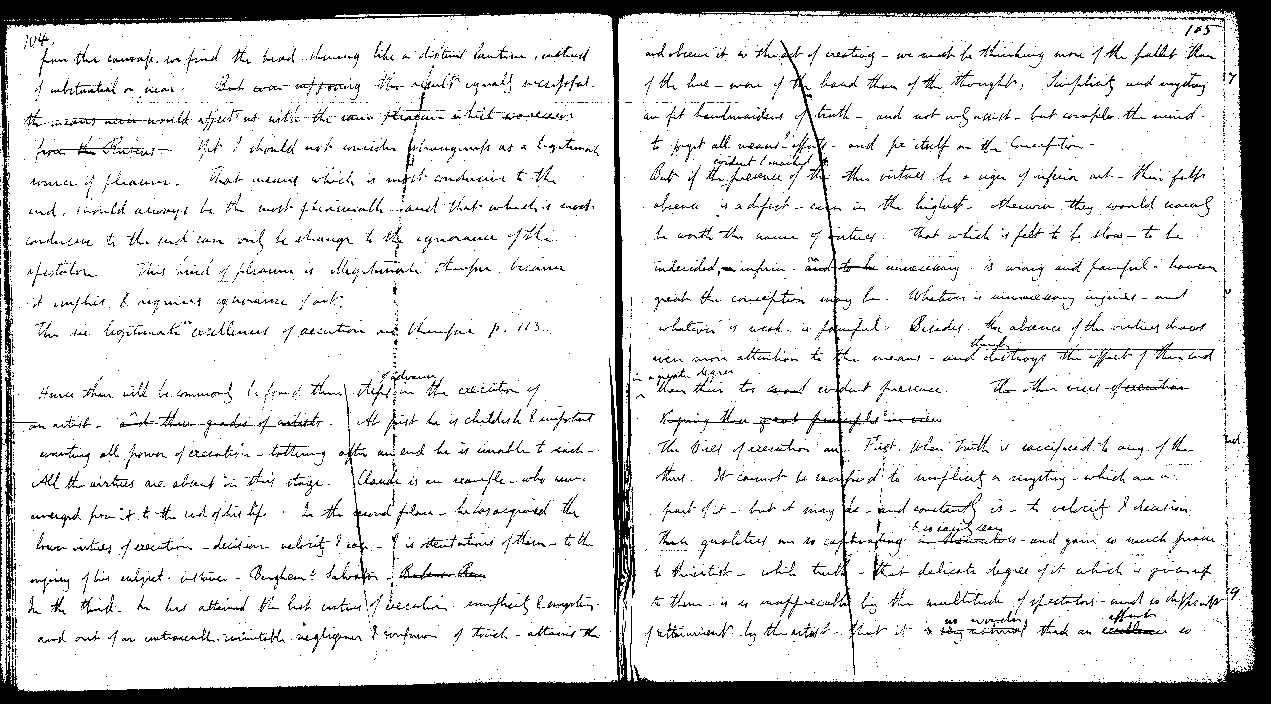 104
from this courage, we find the head shining like a distant lantern, instead
of substantial or near. But even supposing the result equally successful.
the means never would affect us with the same pleasure which we receive
from the
Yet I should not consider strangeness as a legitimate
source of pleasure. That means which is most conducive to the
end, should always be the most pleasurable - and that which is most
conducive to the end can only be strange to the ignorance of the
spectator. This kind of pleasure is illegitimate therefore because
it implies & requires ignorance of art.
The six legitimate excellences of execution are therefore p. 113.
Hence there will be commonly be found three steps of advance in the execution of
an artist. and three grades of artists. At first he is childish & impotent
wanting all power of execution - tottering after an end he is unable to reach -
All the virtues are absent in this stage. Claude is an example - who never
emerged from it to the end of his life. In the second place - he has acquired the
lower virtues of execution - decision velocity & ease - & is ostentatious of them - to the
injury of his subject. Berghem Salvator
In the third - he has attained the last virtues of execution simplicity & mystery.
and out of an untraceable inimitable negligence & confusion of touch - attains the
105
and observe it in the act of creating - we must be thinking more of the pallet than
of the hue - more of the hand than of the thought. Simplicity and mystery
are fit handmaidens of truth - and not only assist - but compel the mind
to forget all means & efforts - and fix itself on the Conception -
But if the evident & marked presence of the other virtues be a sign of inferior art - their felt
absence is a defect - even in the highest - otherwise they would scarcely
be worth the name of virtues. That which is felt to be slow - to be
undecided, inferior and to be unnecessary is wrong and painful - however
great the conception may be. Whatever is unnecessary injures - and
whatever is weak is painful. Besides the absence of the virtues draws
even more attention to the means - and thus destroys the effect of the end
in a greater degree than their too evident presence. The other vices of execution
The Vices of execution are First. When Truth is sacrificed to any of the
three. It cannot be sacrificed to simplicity or mystery - which are a
part of it - but it may be - and constantly is - to velocity & decision
These qualities are so captivating & so easily seen - and gain so much praise
to the artist - while truth - that delicate degree of it which is
to them - is so inappreciable by the multitude of spectators - and so difficult
of attainment by the artist - that it is no wonder that an so